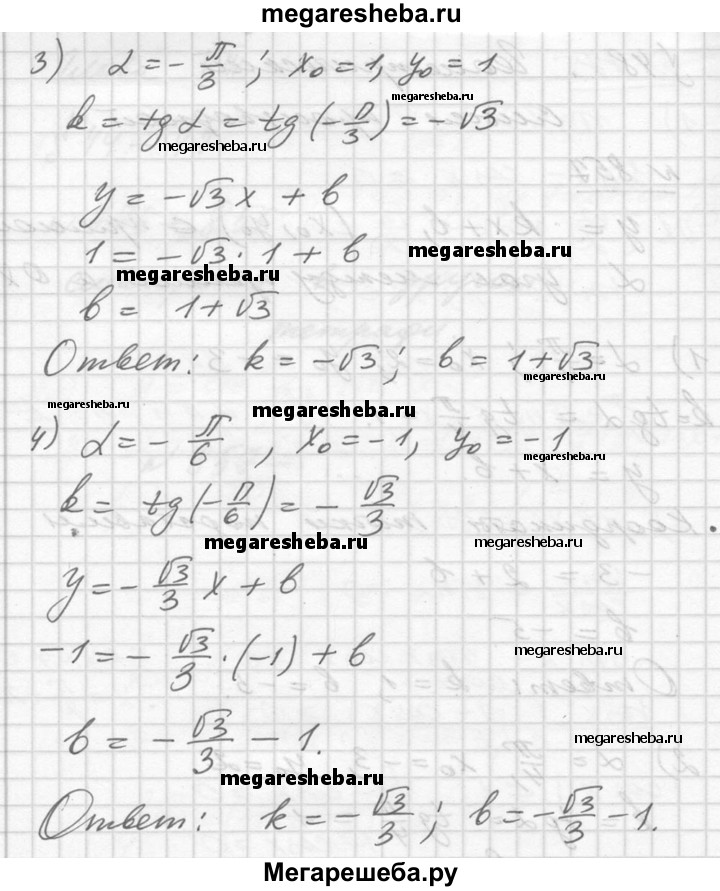 megaresheba.ru
3) α = - π/3 ; x₀ = 1, y₀ = 1
megaresheba.ru
k = tg α = tg (-π/3) = -√3
megaresheba.ru
y = -√3 x + b
1 = -√3 · 1 + b
megaresheba.ru
megaresheba.ru
b = 1 + √3
Ответ: k = -√3 ; b = 1 + √3
megaresheba.ru
megaresheba.ru
megaresheba.ru
4) α = - π/6 , x₀ = -1, y₀ = -1
megaresheba.ru
k = tg (-π/6) = - √3/3
megaresheba.ru
megaresheba.ru
y = - √3/3 x + b
-1 = - √3/3 · (-1) + b
megaresheba.ru
b = - √3/3 - 1.
megaresheba.ru
megaresheba.ru
Ответ: k = - √3/3 ; b = - √3/3 - 1.
Мегарешеба.ру